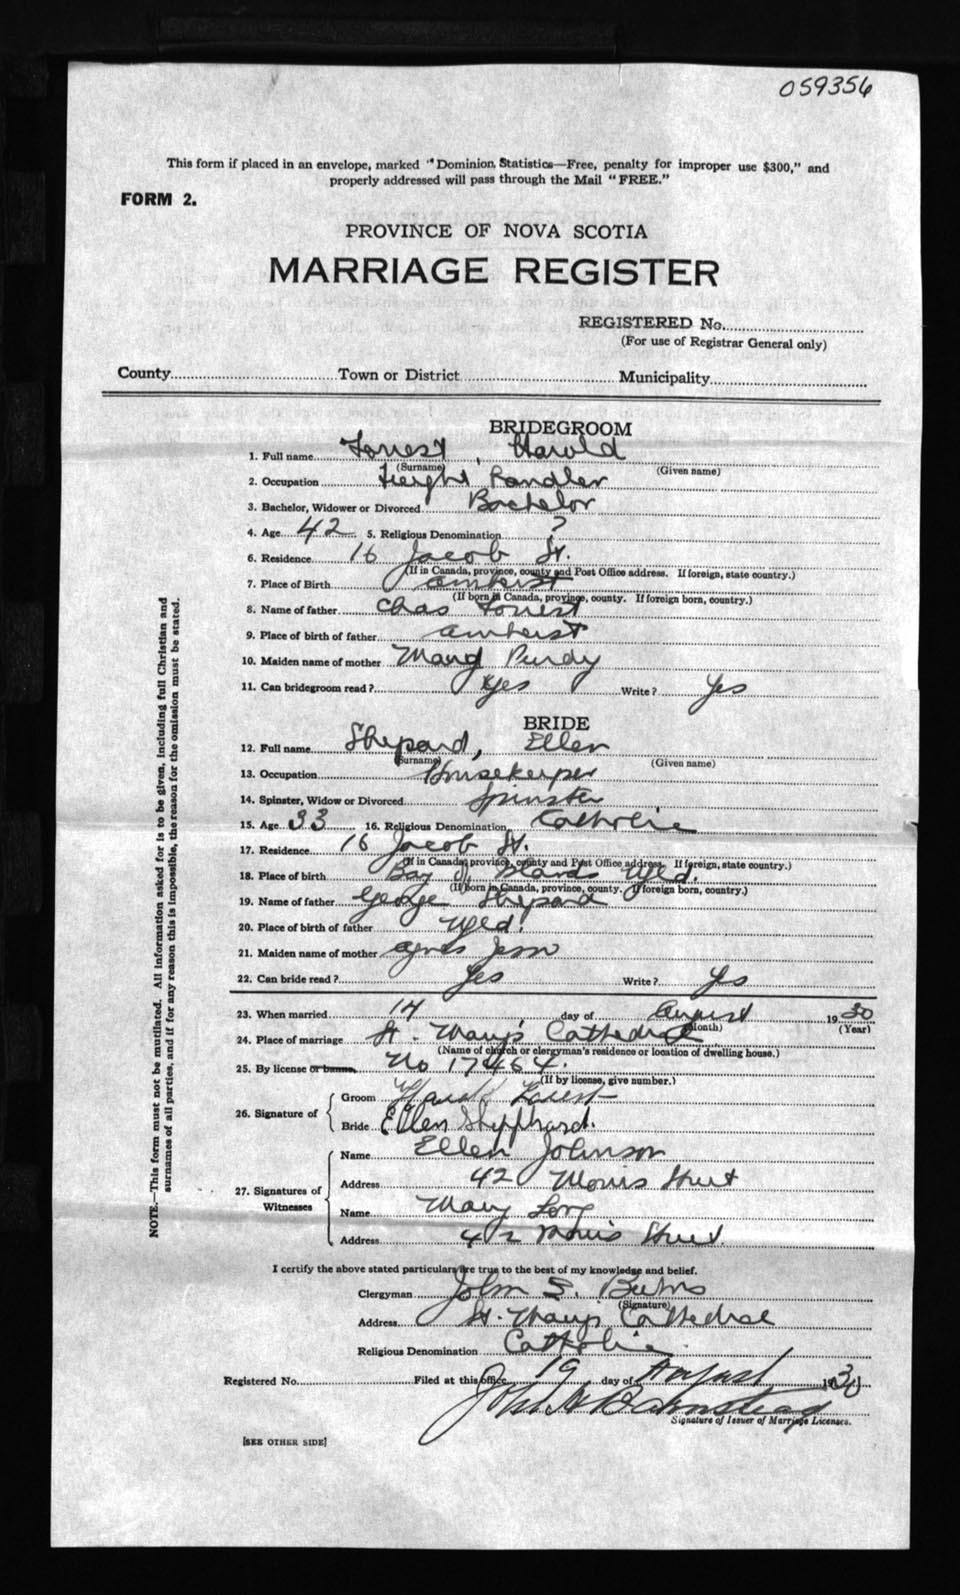 059356
This form if placed in an envelope, marked "Dominion Statistics—Free, penalty for improper use $300," and
properly addressed will pass through the Mail "FREE."
FORM 2.
PROVINCE OF NOVA SCOTIA
MARRIAGE REGISTER
REGISTERED No.
(For use of Registrar General only)
County Town or District Municipality
BRIDEGROOM
1. Full name Forrest, Harold
(Surname) (Given name)
2. Occupation Freight Handler
3. Bachelor, Widower or Divorced Bachelor
4. Age 42 5. Religious Denomination ?
6. Residence 16 Jacob St.
(If in Canada, province, county and Post Office address. If foreign, state country.)
7. Place of Birth Amherst
(If born in Canada, province, county. If foreign born, country.)
8. Name of father Chas Forrest
9. Place of birth of father Amherst
10. Maiden name of mother Mary Purdy
11. Can bridegroom read? Yes Write? Yes
BRIDE
12. Full name Shepard, Ellen
(Surname) (Given name)
13. Occupation Housekeeper
14. Spinster, Widow or Divorced Spinster
15. Age 33 16. Religious Denomination Catholic
17. Residence 16 Jacob St.
(If in Canada, province, county and Post Office address. If foreign, state country.)
18. Place of birth Bay of Islands Nfld.
(If born in Canada, province, county. If foreign born, country.)
19. Name of father George Shepard
20. Place of birth of father Nfld.
21. Maiden name of mother Agnes
22. Can bride read? Yes Write? Yes
23. When married 14 day of August 1930
(Month) (Year)
24. Place of marriage St. Mary's Cathedral
(Name of church or clergyman's residence or location of dwelling house.)
25. By license or banns No 17464.
(If by license, give number.)
26. Signature of
Groom Harold Forrest
Bride Ellen Shepphard.
27. Signatures of Witnesses
Name Ellen Johnson
Address 42 Morris Street
Name Mary Long
Address 42 Morris Street
I certify the above stated particulars are true to the best of my knowledge and belief.
Clergyman John S. Burns
(Signature)
Address St. Mary's Cathedral
Religious Denomination Catholic
Registered No. Filed at this office 19 day of August 1930
John
Signature of Issuer of Marriage Licenses.
[SEE OTHER SIDE]
NOTE.—This form must not be mutilated. All information asked for is to be given, including full Christian and
surnames of all parties, and if for any reason this is impossible, the reason for the omission must be stated.